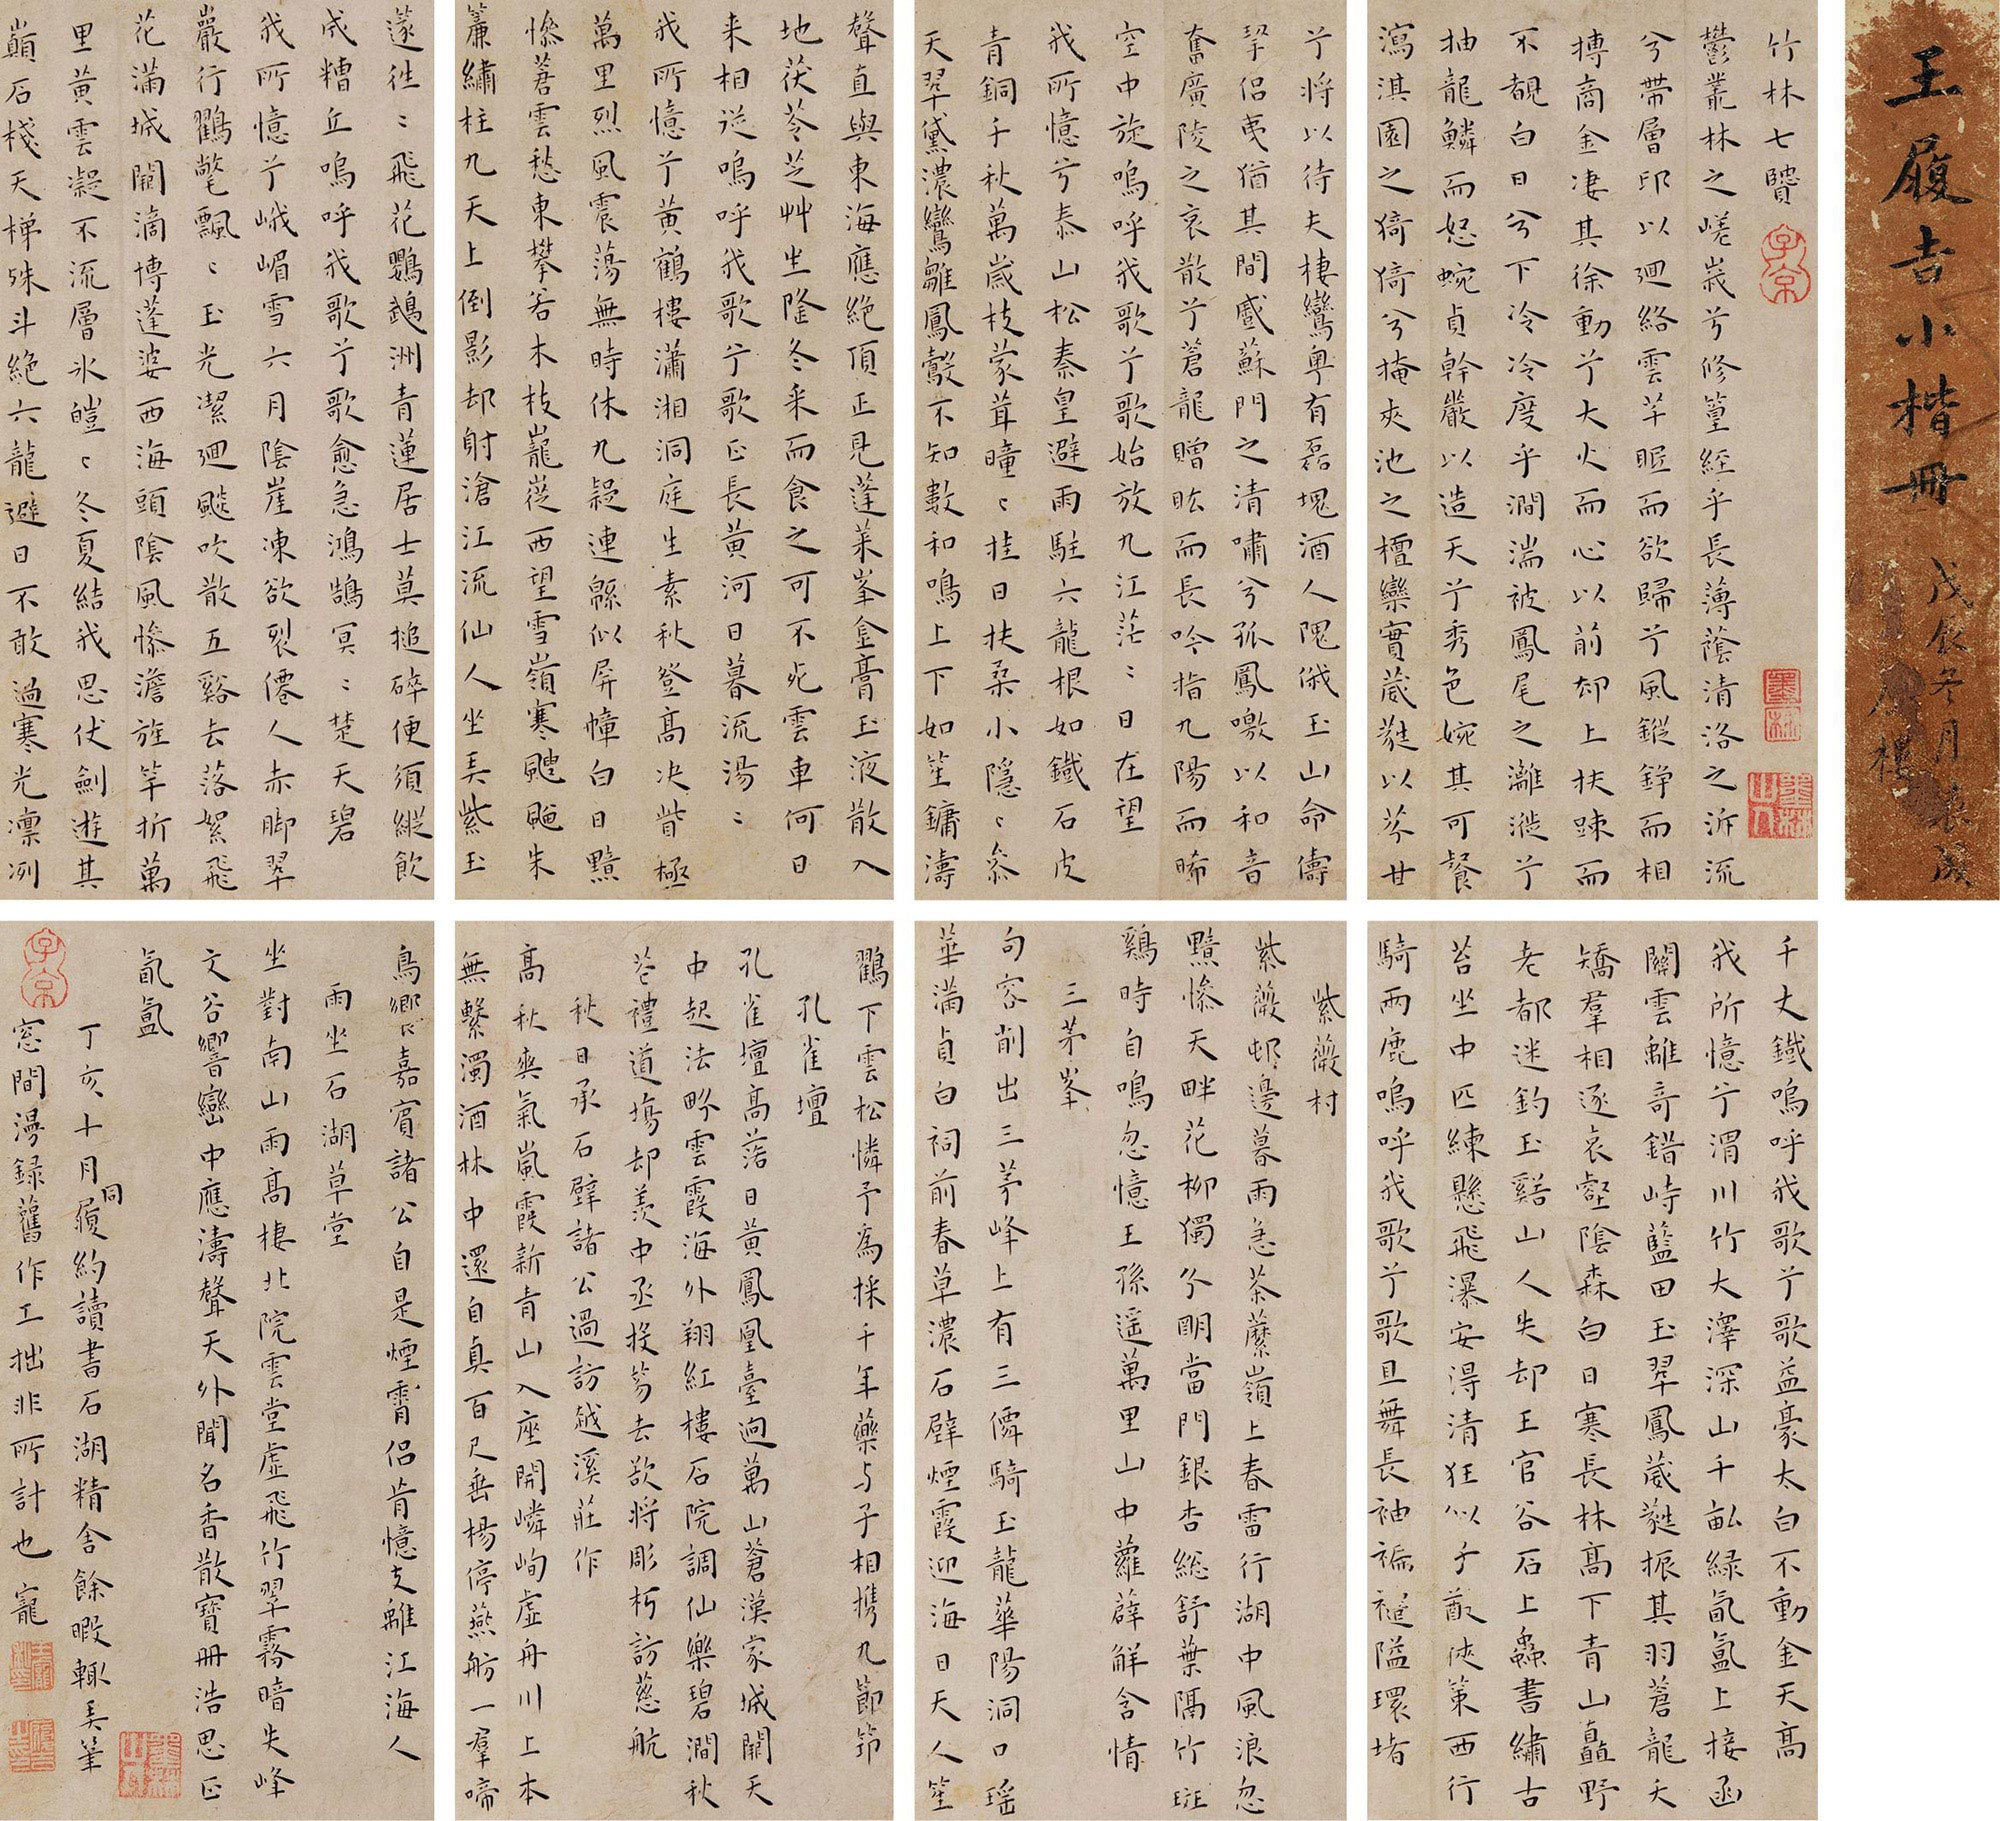 王履吉小楷冊
戊辰冬月裝成
竹林七贒
鬱叢林之嵯峩兮修篁經乎長薄蔭清洛之泝流
兮帶層邙以廻絡雲芊眠而欲歸兮風鏦錚而相
搏商金凄其徐動兮大火而心以前却上扶踈而
不覩白日兮下冷冷度乎澗湍被鳳尾之灕漇兮
抽龍鱗而怒蜿貞幹嚴以造天兮秀色婉其可餐
瀉淇園之猗猗兮掩夾池之檀欒實葳蕤以芬甘
兮將以待夫棲鸞粤有磊塊酒人隗俄玉山命儔
挈侣夷猶其間感蘇門之清嘯兮孤鳳噭以和音
奮廣陵之哀散兮蒼龍贈肱而長吟指九陽而晞
空中旋嗚呼我歌兮歌始放九江茫〻日在望
我所憶兮泰山松秦皇避雨駐六龍根如鐵石皮
青銅千秋萬歲枝蒙茸曈〻挂日扶桑小隱〻叅
天翠黛濃鸞雛鳳鷇不知數和鳴上下如笙鏞濤
聲直與東海應絶頂正見蓬萊峯金膏玉液散入
地茯苓芝艸坐隆冬采而食之可不死雲車何日
来相從嗚呼我歌兮歌正長黄河日暮流湯〻
我所憶兮黄鶴樓瀟湘洞庭生素秋登高决眥極
萬里烈風震蕩無時休九疑連緜似屏幛白日黯
慘蒼雲愁東攀若木枝巃嵸西望雪嶺寒颼飀朱
簾繡柱九天上倒影却射滄江流仙人坐弄紫玉
邃徃〻飛花鸚鵡洲青蓮居士莫搥碎便須縱飲
成糟丘嗚呼我歌兮歌愈急鴻鵠冥〻楚天碧
我所憶兮峨嵋雪六月陰崖凍欲裂僊人赤脚翠
巖行鸛氅飄〻玉光潔廻颷吹散五谿去落絮飛
花滿城闕滴博蓬婆西海頭陰風慘澹旌竿折萬
里黄雲凝不流層氷皚〻冬夏結我思伏劍遊其
巔石棧天梯殊斗絶六龍避日不敢過寒光凛冽
千丈鐵嗚呼我歌兮歌益豪太白不動金天高
我所憶兮渭川竹大澤深山千畝緑氤氲上接函
關雲離奇錯峙藍田玉翠鳳葳蕤振其羽蒼龍夭
矯羣相逐哀壑陰森白日寒長林高下青山矗野
老都迷釣玉谿山人失却王官谷石上蟲書繡古
苔坐中匹練懸飛瀑安淂清狂似子猷侠策西行
騎两鹿嗚呼我歌兮歌且舞長袖褊褼隘環堵
紫薇村
紫薇邨邊暮雨急茶藶嶺上春雷行湖中風浪忽
黯慘天畔花柳獨分明當門銀杏総舒葉隔竹斑
鷄時自鳴忽憶王孫遥萬里山中蘿薜解含情
三茅峯
句容削出三茅峰上有三僊騎玉龍華陽洞口瑶
華滿貞白祠前春草濃石壁煙霞迎海日天人笙
鸛下雲松憐予為採千年藥与子相携九節笻
孔雀壇
孔雀壇高落日黄鳳凰臺迥萬山蒼漢家城闕天
中起法畧雲霞海外翔紅樓石院調仙樂碧澗秋
花禮道塲却羡中丞投笏去欲将彫朽訪慈航
秋日承石壁諸公過訪越溪莊作
高秋爽氣嵐霞新青山入座開嶙峋虚舟川上本
無繫濁酒林中還自真百尺垂楊停燕舫一羣啼
鳥嚮嘉賓諸公自是煙霄侣肯憶支離江海人
雨坐石湖草堂
坐對南山雨高棲北院雲堂虚飛竹翠霧暗失峰
文谷響巒中應濤聲天外聞名香散寶冊浩思正
氤氲
丁亥十月同履約讀書石湖精舍餘暇輙弄筆
窓間漫録舊作工拙非所計也寵